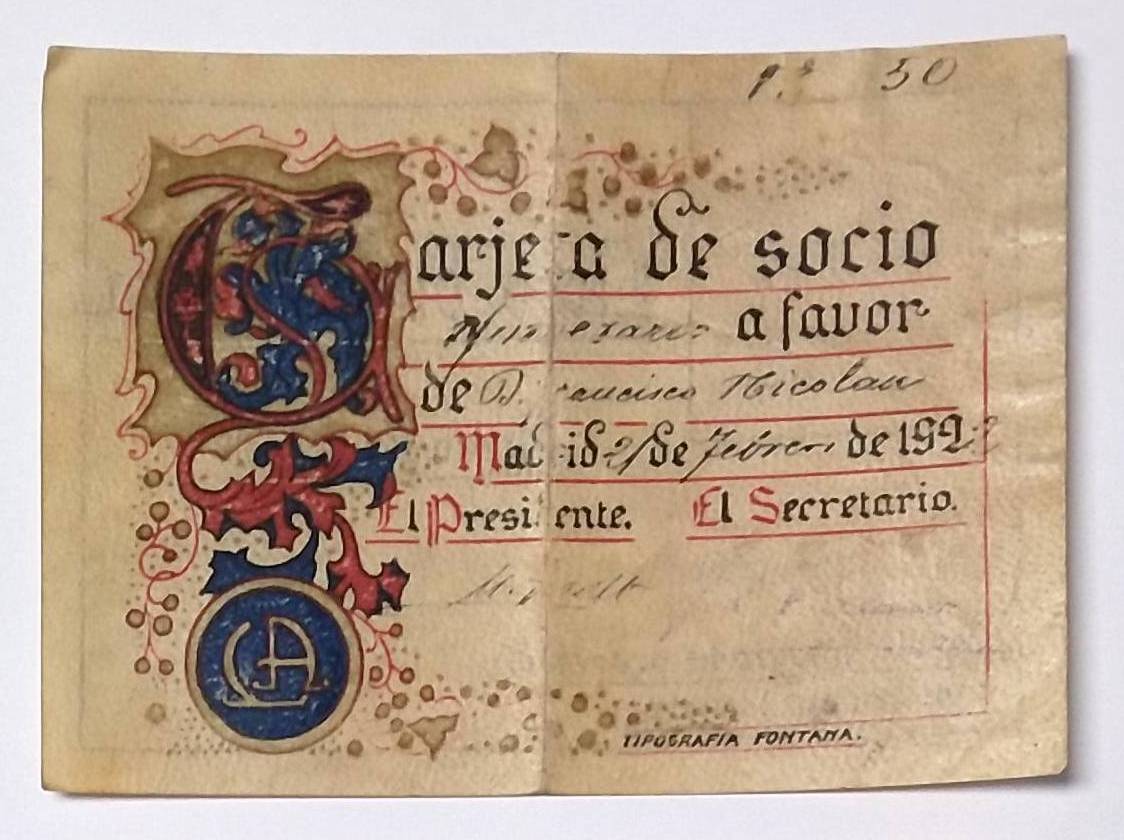 50
Tarjeta de socio
a favor
de D. Francisco Nicolau
Madrid 21 de Febrero de 192
El Presidente. El Secretario.
TIPOGRAFIA FONTANA.